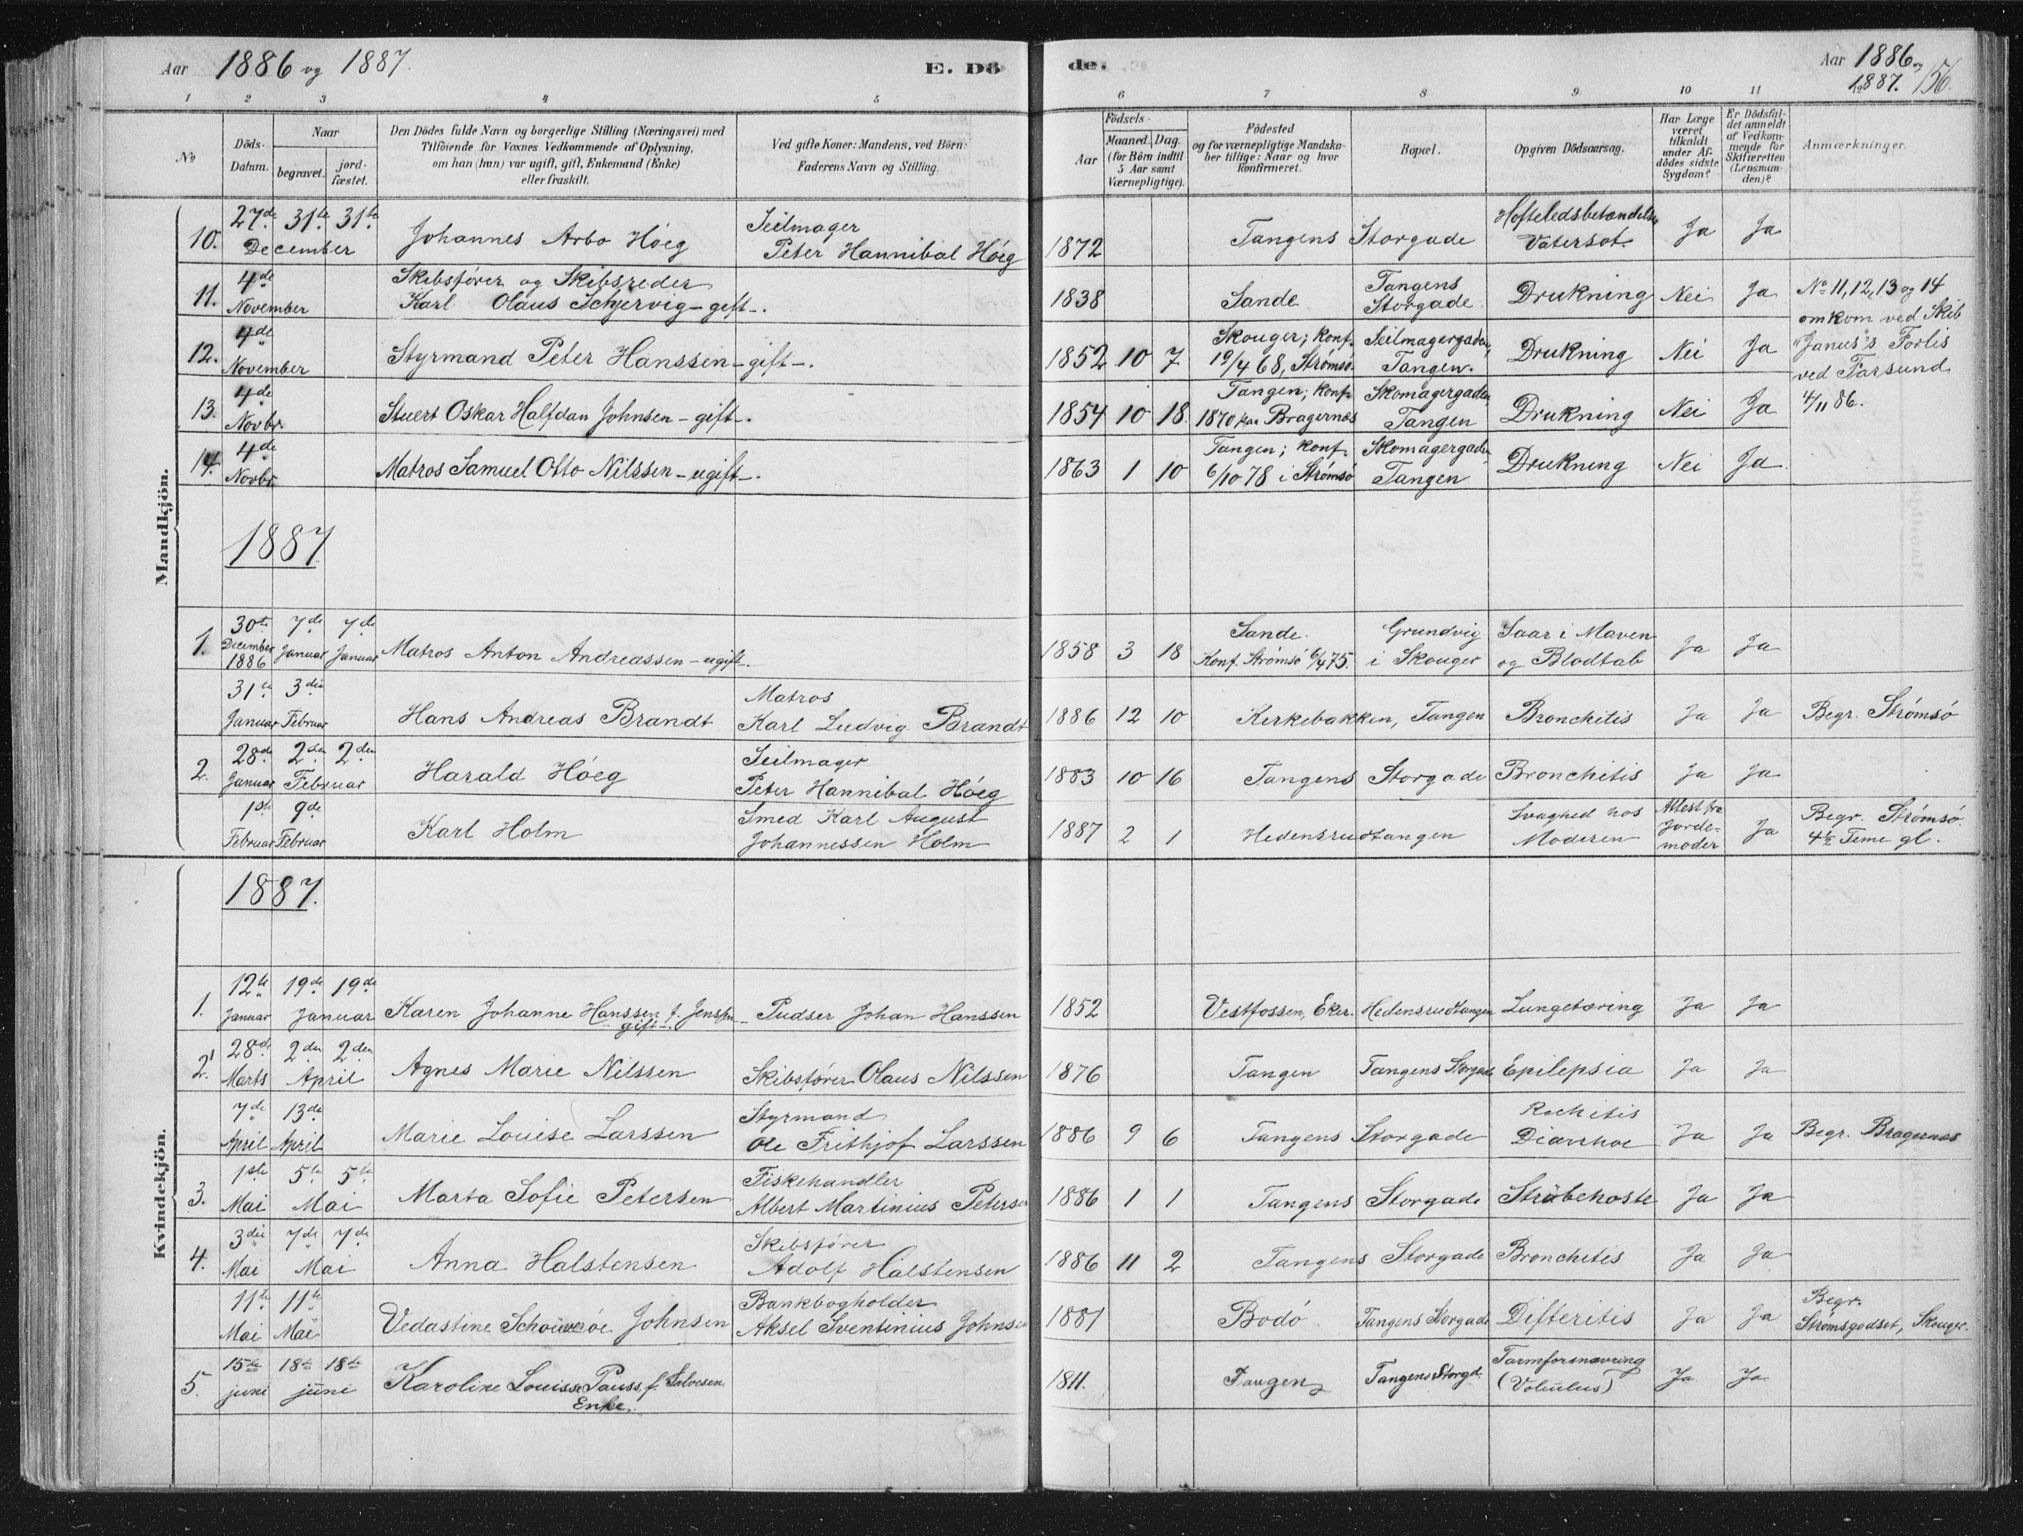 Aar 1886 og 1887.
E. Dö
de.
Aar 1886 og
1887. 156.
1 2 3 4 5 6 7 8 9 10 11 12
No
Döds-Datum.
Naar
begravet.
jord-fæstet.
Den Dödes fulde Navn og borgerlige Stilling (Næringsvei) med
Tilföiende for Voxnes Vedkommende af Oplysning,
om han (hun) var ugift, gift, Enkemand (Enke)
eller fraskilt.
Ved gifte Koner: Mandens, ved Börn:
Faderens Navn og Stilling.
Födsels-
Aar
Maaned. Dag.
(for Börn indtil
5 Aar samt
Værnepligtige).
Födested
og for værnepligtige Mandska-
ber tillige: Naar og hvor
konfirmeret.
Bopæl.
Opgiven Dödsaarsag.
Har Læge
været
tilkaldt
under Af-
dödes sidste
Sygdom?
Er Dödsfal-
det anmeldt
af Vedkom-
mende for
Skifteretten
(Lensman-
den)?
Anmærkninger.
Mandkjön.
10. 27de December 31te 31te Johannes Arbo Höeg Seilmager Peter Hannibal Höeg 1872 Tangens Storgade Hofteledsbetændelse Vatersot Ja Ja
11. 4de November Skibsförer og Skibsreder Karl Olaus Schjervig - gift -. 1838 Sande Tangens Storgade Drukning Nei Ja No 11, 12, 13 og 14
12. 4de November Styrmand Peter Hanssen - gift -. 1852 10 7 Skouger; konf. 19/4 68, Strømsø Seilmagergaden, Tangen. Drukning Nei Ja omkom ved Skib "Janus"s Forlis
13. 4de Novbr Stuert Oskar Halfdan Johnsen - gift -. 1854 10 18 Tangen; konf. 1870 paa Bragernæs Skomagergaden Tangen Drukning Nei Ja ved Farsund 4/11 86.
14. 4de Novbr Matros Samuel Otto Nilssen - ugift -. 1863 1 10 Tangen; konf. 6/10 78 i Strømsø Skomagergaden Tangen Drukning Nei Ja
1887
1. 30te December 1886 7de Januar 7de Januar Matros Anton Andreassen - ugift. 1858 3 18 Sande. Konf. Strømsø 6/4 75. Grundvig i Skouger Saar i Maven og Blodtab Ja Ja
31te Januar 3die Februar Hans Andreas Brandt Matros Karl Ludvig Brandt 1886 12 10 Kirkebakken, Tangen Bronchitis Ja Ja Begr. Strømsö
2. 28de Januar 2den 2den Februar Harald Höeg Seilmager Peter Hannibal Höeg 1883 10 16 Tangens Storgade Bronchitis Ja Ja
1ste Februar 9de Februar Karl Holm Smed Karl August Johannessen Holm 1887 2 1 Hedensrudtangen Svaghed hos Moderen Attest fra Jorde-moder Ja Begr. Strømsø 4 1/2 Time gl.
Kvindekjön.
1887.
1. 12te Januar 19de 19de Januar Karen Johanne Hanssen f. Jenssen - gift -. Pudser Johan Hanssen 1852 Vestfossen, Eker. Hedensrudtangen Lungetæring Ja Ja
2. 28de Marts 2den 2den April Agnes Marie Nilssen Skibsförer Olaus Nilssen 1876 Tangen Tangens Storgade Epilepsia Ja Ja
7de April 13de April Marie Louise Larssen Styrmand Ole Frithjof Larssen 1886 9 6 Tangens Storgade Rachitis Diarrhoe Ja Ja Begr. Bragernæs
3. 1ste Mai 5te 5te Mai Marta Sofie Petersen Fiskehandler Albert Martinius Petersen 1886 1 1 Tangens Storgade Strubehoste Ja Ja
4. 3die Mai 7de 7de Mai Anna Halstensen Skibsförer Adolf Halstensen 1886 11 2 Tangens Storgade Bronchitis Ja Ja
11te Mai 11te Mai Vedastine Johnsen Bankbogholder Aksel Sventinius Johnsen 1881 Bodö. Tangens Storgade Difteritis Ja Ja Begr. Strømsgodset, Skouger.
5. 15te juni 18te 18te juni Karoline Louise Pauss, f. Salvesen Enke. 1811. Tangen Tangens Storgd. Tarmforsnævring (Volvulus) Ja Ja